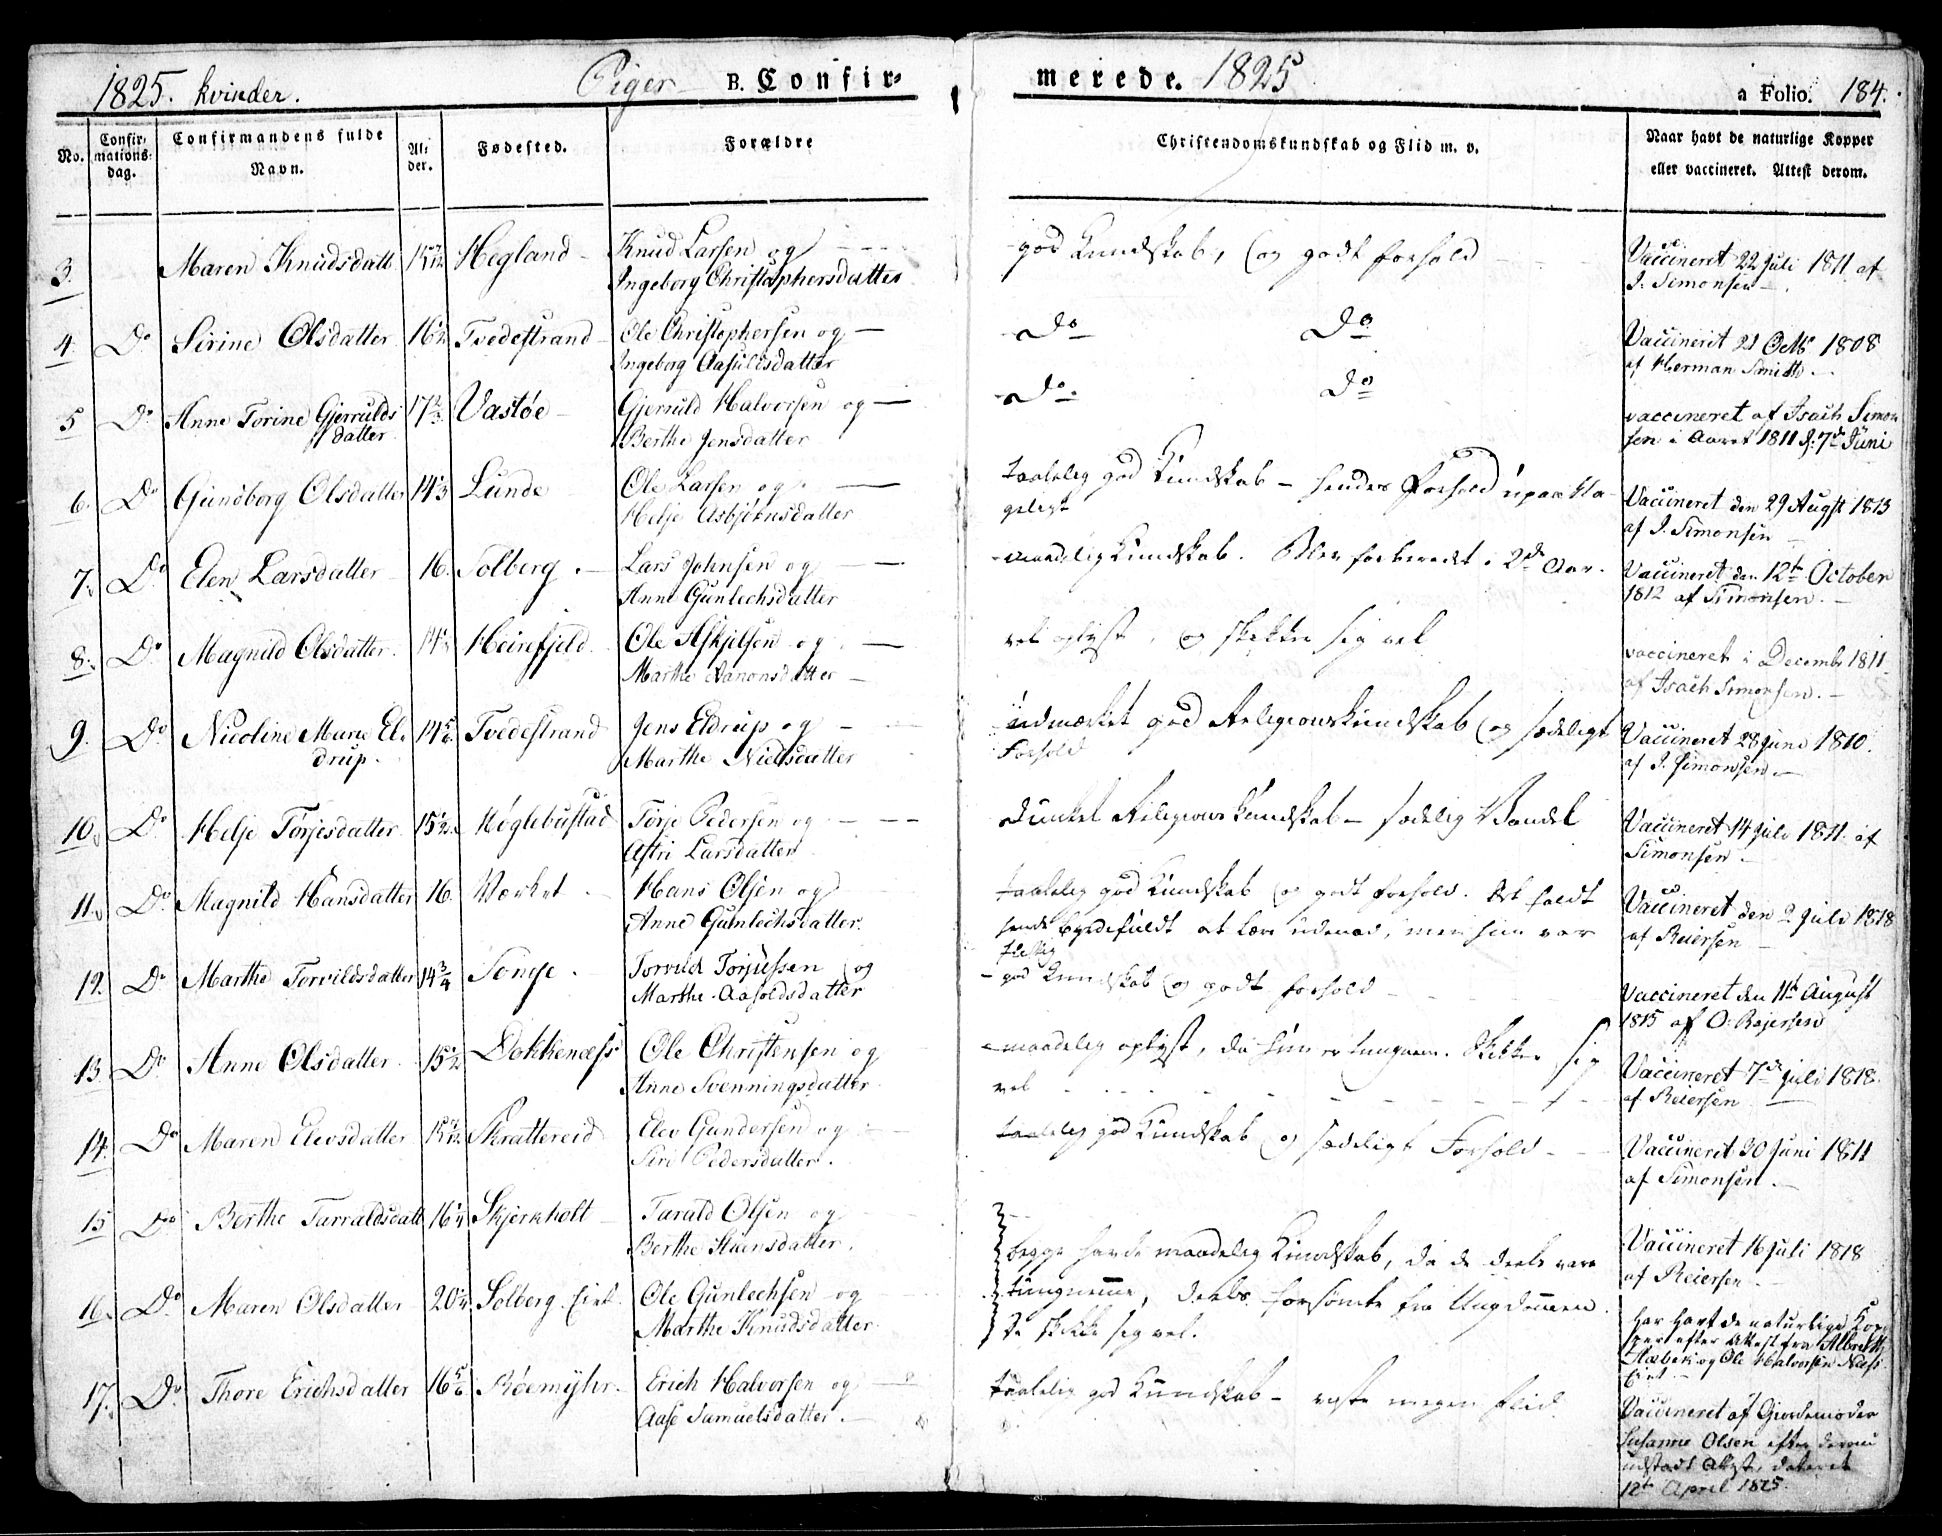 1825. kvinder.
Piger B. Confir-
merede. 1825
a Folio. 184.
No.
Confir-
mations-
dag.
Confirmandens fulde
Navn.
Al-
der.
Fødested.
Forældre
Christendomskundskab og Flid m. v.
Naar havt de naturlige Kopper
eller vaccineret. Attest derom.
3. Maren Knudsdatt Hegland Knud Larsen og
Ingeborg Christophersdatter
god Kundskab, og godt Forhold
Vaccineret 22 juli 1811 af
I. Simonsen
4. Do Sirine Olsdatter 16½ Tvedestrand Ole Christophersen og
Ingeborg Aasulfsdatter
Do Do
Vaccineret 21 Octb 1808
af Herman Smith
5 Do Anne Torine Gjerulds
datter 17 Vastøe Gjeruld Halvorsen og
Berthe Jensdatter
Do Do
vaccineret af Isach Simon
sen i Aaret 1811 d: 7de Juni
6. Do Gunborg Olsdatter 14 Lunde Ole Larsen og
Helje Asbjørnsdatter
taalelig god Kundskab - hendes Forhold upaakla-
geligt
Vaccineret den 29 Augst 1813
af I. Simonsen
7. Do Elen Larsdatter 16. Solberg Lars Johnsen og
Anne Gunlechsdatter
maadelig Kundskab. Blev forberedt i 2de Aar.
Vaccineret den 12te October
1812 af Simonsen.
8. Do Magnild Olsdatter. 14 Heirefjeld Ole Askjelsen og
Marthe Aanonsdatter
vel oplyst, og skikker sig vel
vaccineret i Decembr 1811
af Isach Simonsen.
9. Do Nicoline Marie El-
drup. 14 Tvedestrand Jens Eldrup og
Marthe Nielsdatter
udmærket god Religionskundskab og sædeligt
Forhold
Vaccineret 28 juni 1810.
af I. Simonsen
10. Do Helje Torjesdatter 15½ Røglebustad Torje Pedersen og
Astri Larsdatter
dunkel Religions Kundskab - sædelig Vandel
Vaccineret 14 juli 1811. af
Simonsen
11. Do Magnild Hansdatter 16. Værket Hans Olsen og
Anne Gunlechsdatter.
taalelig god Kundskab og godt Forhold. Det faldt
hende byrdefuldt at lære udenad, men hun var
flittig
Vaccineret den 2 juli 1818
af Reiersen
12. Do Marthe Torvildsdatter 14¾ Songe Torvild Torjussen og
Marthe Aasoldsdatter
god Kundskab og godt Forhold
Vaccineret den 11te August
1815 af O. Rejersen
13. Do Anne Olsdatter 15½ Dokkenæss Ole Christensen og
Anne Svenningsdatter
maadelig oplyst, da hun er tungnem. Skikker sig
vel
Vaccineret 7de juli 1818.
af Reiersen
14. Do Maren Elevsdatter Skrattereid Elev Gundersen og
Siri Pedersdatter.
taalelig god Kundskab og sædeligt Forhold
Vaccineret 30 juni 1811
af Simonsen
15 Do Berthe Tarraldsdatt 16 Skjerkholt Tarald Olsen og
Berthe Hansdatter.
begge havde maadelig Kundskab, da de deels vare
Vaccineret 16 juli 1818
af Reiersen
16. Do Maren Olsdatter 20 Solberg Eiet Ole Gunlechsen og
Marthe Knudsdatter
tungnemme, deels forsømte fra Ungdommen.
de skikke sig vel.
Har havt de naturlige Kop
per efter Attest fra Albreth
og Ole Halvorsen Næss
Eiet
17. Do Thore Erichsdatter 16 Røemyhr Erich Halvorsen og
Aase Samuelsdatter.
taalelig god Kundskab - viste megen Flid
Vaccineret af Gjordemoder
Susanne Olsen efter
udstædt Attest, dateret
12te April 1825.